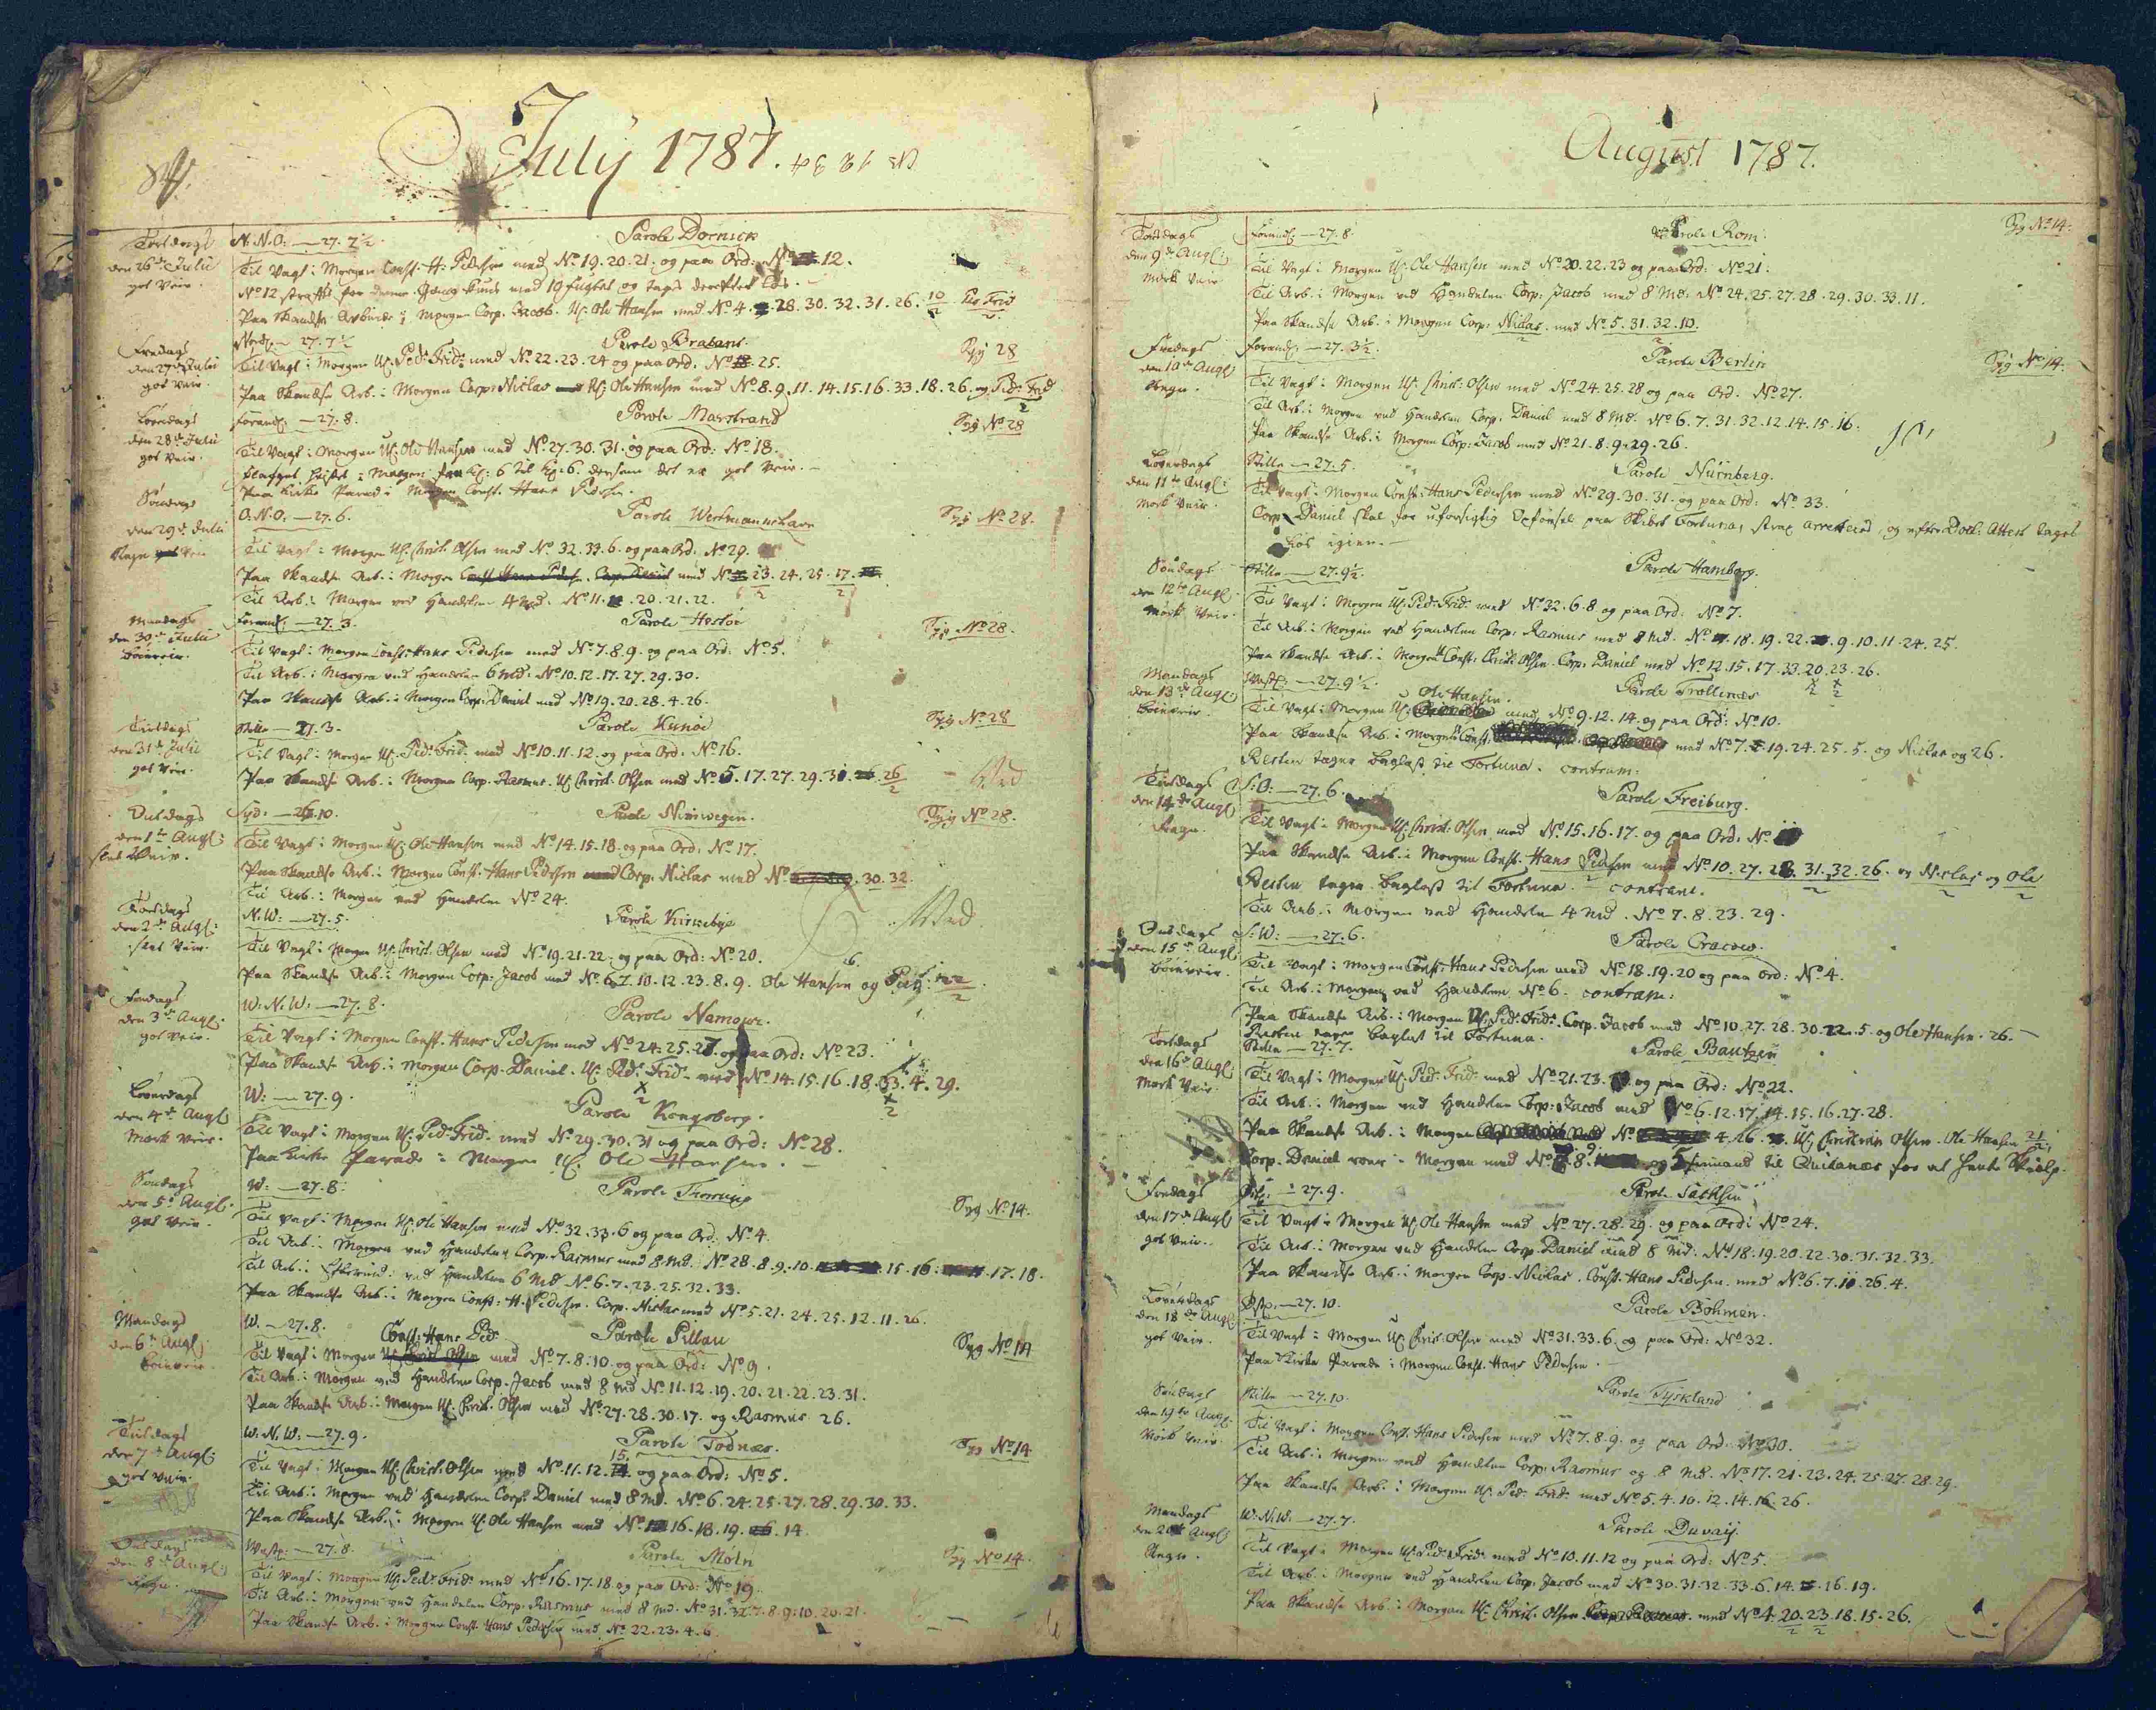 July 1787.
Torsdags N.N.O: — 27. 7½. Parole Dornick
den 26de Julii Til Vagt i Morgen Const. H: Pedersen med No 19. 20. 21. og paa Ord: No 12.
got Veir. No 12 straffes for denne Gang kuns med 19 fugtel og tages derefter løs.
Paa Skandse Arbeide i Morgen Corp. Jacob. Uc. Ole Hansen med No 4. 28. 30. 32. 31. 26. 10/2 Ped Frid
Fredags Nordl. — 27. 7½ Parole Brabant. Syg 28
den 27de Julii Til Vagt i Morgen Uc. Ped: Frid: med No 22. 23. 24 og paa Ord. No 25.
got Veir. Paa Skandse Arb. i Morgen Corp: Niclas Uc. Ole Hansen med No 8. 9. 11. 14. 15. 16. 33. 18. 26. og Ped: Frid 2
Løverdags Forandl. — 27. 8. Parole Marstrand Syg No 28
den 28de Julii Til Vagt i Morgen Uc. Ole Hansen med No 27. 30. 31. og paa Ord. No 18.
got Veir. Flagget heises i Morgen fra Kl: 6 til Kl: 6. dersom det er got Veir.
Paa Kirke Parade i Morgen Const. Hans Pedersen.
Søndags O.N.O: — 27. 6. Parole Westmannshavn Syg No 28.
den 29de Julii Til Vagt i Morgen Uc. Christ. Olsen med No 32. 33. 6. og paa Ord: No 29.
Regn Veir Paa Skandse Arb. i Morgen med No 23. 24. 25. 17.
Til Arb. i Morgen ved Handelen 4 Md. No 11. 20. 21. 22.
Mandags Forandl. — 27. 3. Parole Hestøe Syg No 28.
den 30te Julii Til Vagt i Morgen Const: Hans Pedersen med No 7. 8. 9. og paa Ord: No 5.
Bøieveir. Til Arb. i Morgen ved Handelen 6 Md. No 10. 12. 17. 27. 29. 30.
Paa Skandse Arb. i Morgen Corp: Daniel med No 19. 20. 28. 4. 26.
Tiisdags Stille — 27. 3. Parole Kunøe Syg No 28
den 31te Julii Til Vagt i Morgen Uc. Ped: Frid: med No 10. 11. 12. og paa Ord: No 16.
got Veir. Paa Skandse Arb. i Morgen Corp. Rasmus. Uc. Christ. Olsen med No 5. 17. 27. 29. 30. 26/2
Onsdags Syd: — 26. 10. Parole Nimwegen. Syg No 28.
den 1te Augl: Til Vagt i Morgen Uc. Ole Hansen med No 14. 15. 18. og paa Ord: No 17.
slet Veir. Paa Skandse Arb. i Morgen Const. Hans Pedersen Corp. Niclas med No 30. 32.
Til Arb. i Morgen ved Handelen No 24.
Torsdags N.W: — 27. 5. Parole Kirkebye
den 2de Augl: Til Vagt i Morgen Uc. Christ. Olsen med No 19. 21. 22. og paa Ord: No 20.
slet Veir. Paa Skandse Arb. i Morgen Corp. Jacob med No 6. 7. 10. 12. 23. 8. 9. Ole Hansen og
Fredags W.N.W: — 27. 8. Parole Namour.
den 3de Augl: Til Vagt i Morgen Const. Hans Pedersen med No 24. 25. 27. og paa Ord: No 23.
got Veir. Paa Skandse Arb. i Morgen Corp. Daniel. Uc. Ped: Frid: med No 14. 15. 16. 18. 33. 4. 29.
Løverdags W: — 27. 9. Parole Kongsberg.
den 4de Augl Til Vagt i Morgen Uc. Ped: Frid: med No 29. 30. 31 og paa Ord: No 28.
Mørk Veir. Paa Kirke Parade i Morgen Uc. Ole Hansen.
Søndags W: — 27. 8. Parole Syg No 14.
den 5te Augl: Til Vagt i Morgen Uc. Ole Hansen med No 32. 33. 6 og paa Ord: No 4.
got Veir. Til Arb. i Morgen ved Handelen Corp. Rasmus med 8 Md. No 28. 8. 9. 10. 15. 16. 17. 18.
Til Arb. i Eftermid: ved Handelen 6 Md No 6. 7. 23. 25. 32. 33.
Paa Skandse Arb. i Morgen Const: H. Pedersen. Corp. Niclas med No 5. 21. 24. 25. 12. 11. 26.
Mandags W. — 27. 8. Parole Pillau Syg No 14
den 6te Augl: Til Vagt i Morgen Const: Hans Ped: med No 7. 8. 10. og paa Ord: No 9.
Bøieveir. Til Arb. i Morgen ved Handelen Corp. Jacob med 8 Md No 11. 12. 19. 20. 21. 22. 23. 31.
Paa Skandse Arb. i Morgen Uc. Christ. Olsen med No 27. 28. 30. 17. og Rasmus 26.
Tiisdags W.N.W: — 27. 9. Parole Todnæs. Syg No 14
den 7de Augl: Til Vagt i Morgen Uc. Christ. Olsen med No 11. 12. 15. og paa Ord: No 5.
got Veir. Til Arb. i Morgen ved Handelen Corp: Daniel med 8 Md. No 6. 24. 25. 27. 28. 29. 30. 33.
Paa Skandse Arb. i Morgen Uc. Ole Hansen med No 16. 18. 19. 14.
Onsdags Westl: — 27. 8. Parole Møln Syg No 14.
den 8de Augl: Til Vagt i Morgen Uc. Ped: Frid: med No 16. 17. 18. og paa Ord: No 19.
Regn. Til Arb. i Morgen ved Handelen Corp. Rasmus med 8 Md. No 31. 32. 7. 8. 9. 10. 20. 21.
Paa Skandse Arb. i Morgen Const. Hans Pedersen med No 22. 23. 4. 6.
August 1787.
Torsdags Forandl. — 27. 8. Parole Rom. Syg No 14.
den 9de Augl: Til Vagt i Morgen Uc. Ole Hansen med No 20. 22. 23 og paa Ord: No 21.
Mørk Veir Til Arb. i Morgen ved Handelen Corp: Jacob med 8 Md: No 24. 25. 27. 28. 29. 30. 33. 11.
Paa Skandse Arb. i Morgen Corp: Niclas. med No 5. 31. 32. 10.
Fredags Forandl. — 27. 3½. Parole Berlin Syg No 14.
den 10de Augl Til Vagt i Morgen Uc. Christ: Olsen med No 24. 25. 28 og paa Ord. No 27.
Regn. Til Arb. i Morgen ved Handelen Corp. Daniel med 8 Md. No 6. 7. 31. 32. 12. 14. 15. 16.
Paa Skandse Arb. i Morgen Corp: Jacob med No 21. 8. 9. 29. 26.
Løverdags Stille — 27. 5. Parole Nürnberg.
den 11te Augl: Til Vagt i Morgen Const: Hans Pedersen med No 29. 30. 31. og paa Ord: No 33.
Mørk Veir. Corp. Daniel skal for uforsigtig Opførsel paa Skibet Fortuna, strax arresteres, og efter Doct: Attest tages
løs igien.
Søndags Stille — 27. 9½. Parole Hamborg.
den 12te Augl: Til Vagt i Morgen Uc. Ped: Frid: med No 32. 6. 8 og paa Ord: No 7.
Mørk Veir. Til Arb. i Morgen ved Handelen Corp: Rasmus med 8 Md. No 18. 19. 22. 9. 10. 11. 24. 25.
Paa Skandse Arb. i Morgen Const: Christ: Olsen. Corp: Daniel med No 12. 15. 17. 33. 20. 23. 26.
Mandags Westl: — 27. 9½. Parole Trollenæs
den 13de Augl Til Vagt i Morgen Uc. Ole Hansen med No 9. 12. 14. og paa Ord: No 10.
Bøieveir. Paa Skandse Arb. i Morgen Const. med No 7. 19. 24. 25. 5. og Niclas og 26.
Resten tager Baglast til Fortuna. contram:
Tiisdags S:O: — 27. 6. Parole Freiburg.
den 14de Augl Til Vagt i Morgen Uc. Christ: Olsen med No 15. 16. 17. og paa Ord: No
Regn. Paa Skandse Arb. i Morgen Const. Hans Pedersen med No 10. 27. 28. 31. 32. 26. og Niclas og Ole
Resten tager Baglast til Fortuna. contram.
Til Arb. i Morgen ved Handelen 4 Md. No 7. 8. 23. 29.
Onsdags S:W: — 27. 6. Parole Cracow.
den 15de Augl Til Vagt i Morgen Const: Hans Pedersen med No 18. 19. 20 og paa Ord: No 4.
Bøieveir. Til Arb. i Morgen ved Handelen No 6. contram:
Paa Skandse Arb. i Morgen Uc. Ped: Frid: Corp. Jacob med No 10. 27. 28. 30. 22. 5. og Ole Hansen. 26.
Resten tager Baglast til Fortuna.
Torsdags Stille — 27. 7. Parole Bautzen
den 16de Augl: Til Vagt i Morgen Uc. Ped: Frid: med No 21. 23. og paa Ord: No 22.
Mørk Veir Til Arb. i Morgen ved Handelen Corp: Jacob med No 6. 12. 17. 14. 15. 16. 27. 28.
Paa Skandse Arb. i Morgen No 4. 26. Uc. Christian Olsen. Ole Hansen 21/2
Corp. Daniel roer i Morgen med No 8. 9. og 5 til Quitanæs for at hente
Fredags — 27. 9. Parole Sachsen
den 17de Augl Til Vagt i Morgen Uc. Ole Hansen med No 27. 28. 29. og paa Ord: No 24.
got Veir. Til Arb. i Morgen ved Handelen Corp. Daniel med 8 Md: No 18. 19. 20. 22. 30. 31. 32. 33.
Paa Skandse Arb. i Morgen Corp. Niclas. Const. Hans Pedersen. med No 6. 7. 10. 26. 4.
Løverdags Østl. — 27. 10. Parole Böhmen.
den 18de Augl: Til Vagt i Morgen Uc. Christ: Olsen med No 31. 33. 6. og paa Ord: No 32.
got Veir. Paa Kirke Parade i Morgen Const. Hans Pedersen.
Søndags Stille — 27. 10. Parole Tyskland
den 19te Augl: Til Vagt i Morgen Const. Hans Pedersen med No 7. 8. 9. og paa Ord. No 30.
Mørk Veir. Til Arb. i Morgen ved Handelen Corp: Rasmus og 8 Md. No 17. 21. 23. 24. 25. 27. 28. 29.
Paa Skandse Arb. i Morgen Uc. Ped: Frid: med No 5. 4. 10. 12. 14. 16. 26.
Mandags W.N.W. — 27. 7. Parole Duvaij.
den 20de Augl Til Vagt i Morgen Uc. Ped: Frid: med No 10. 11. 12 og paa Ord: No 5.
Regn. Til Arb. i Morgen ved Handelen Corp. Jacob med No 30. 31. 32. 33. 6. 14. 16. 19.
Paa Skandse Arb. i Morgen Uc. Christ. Olsen. med No 4. 20. 23. 18. 15. 26.